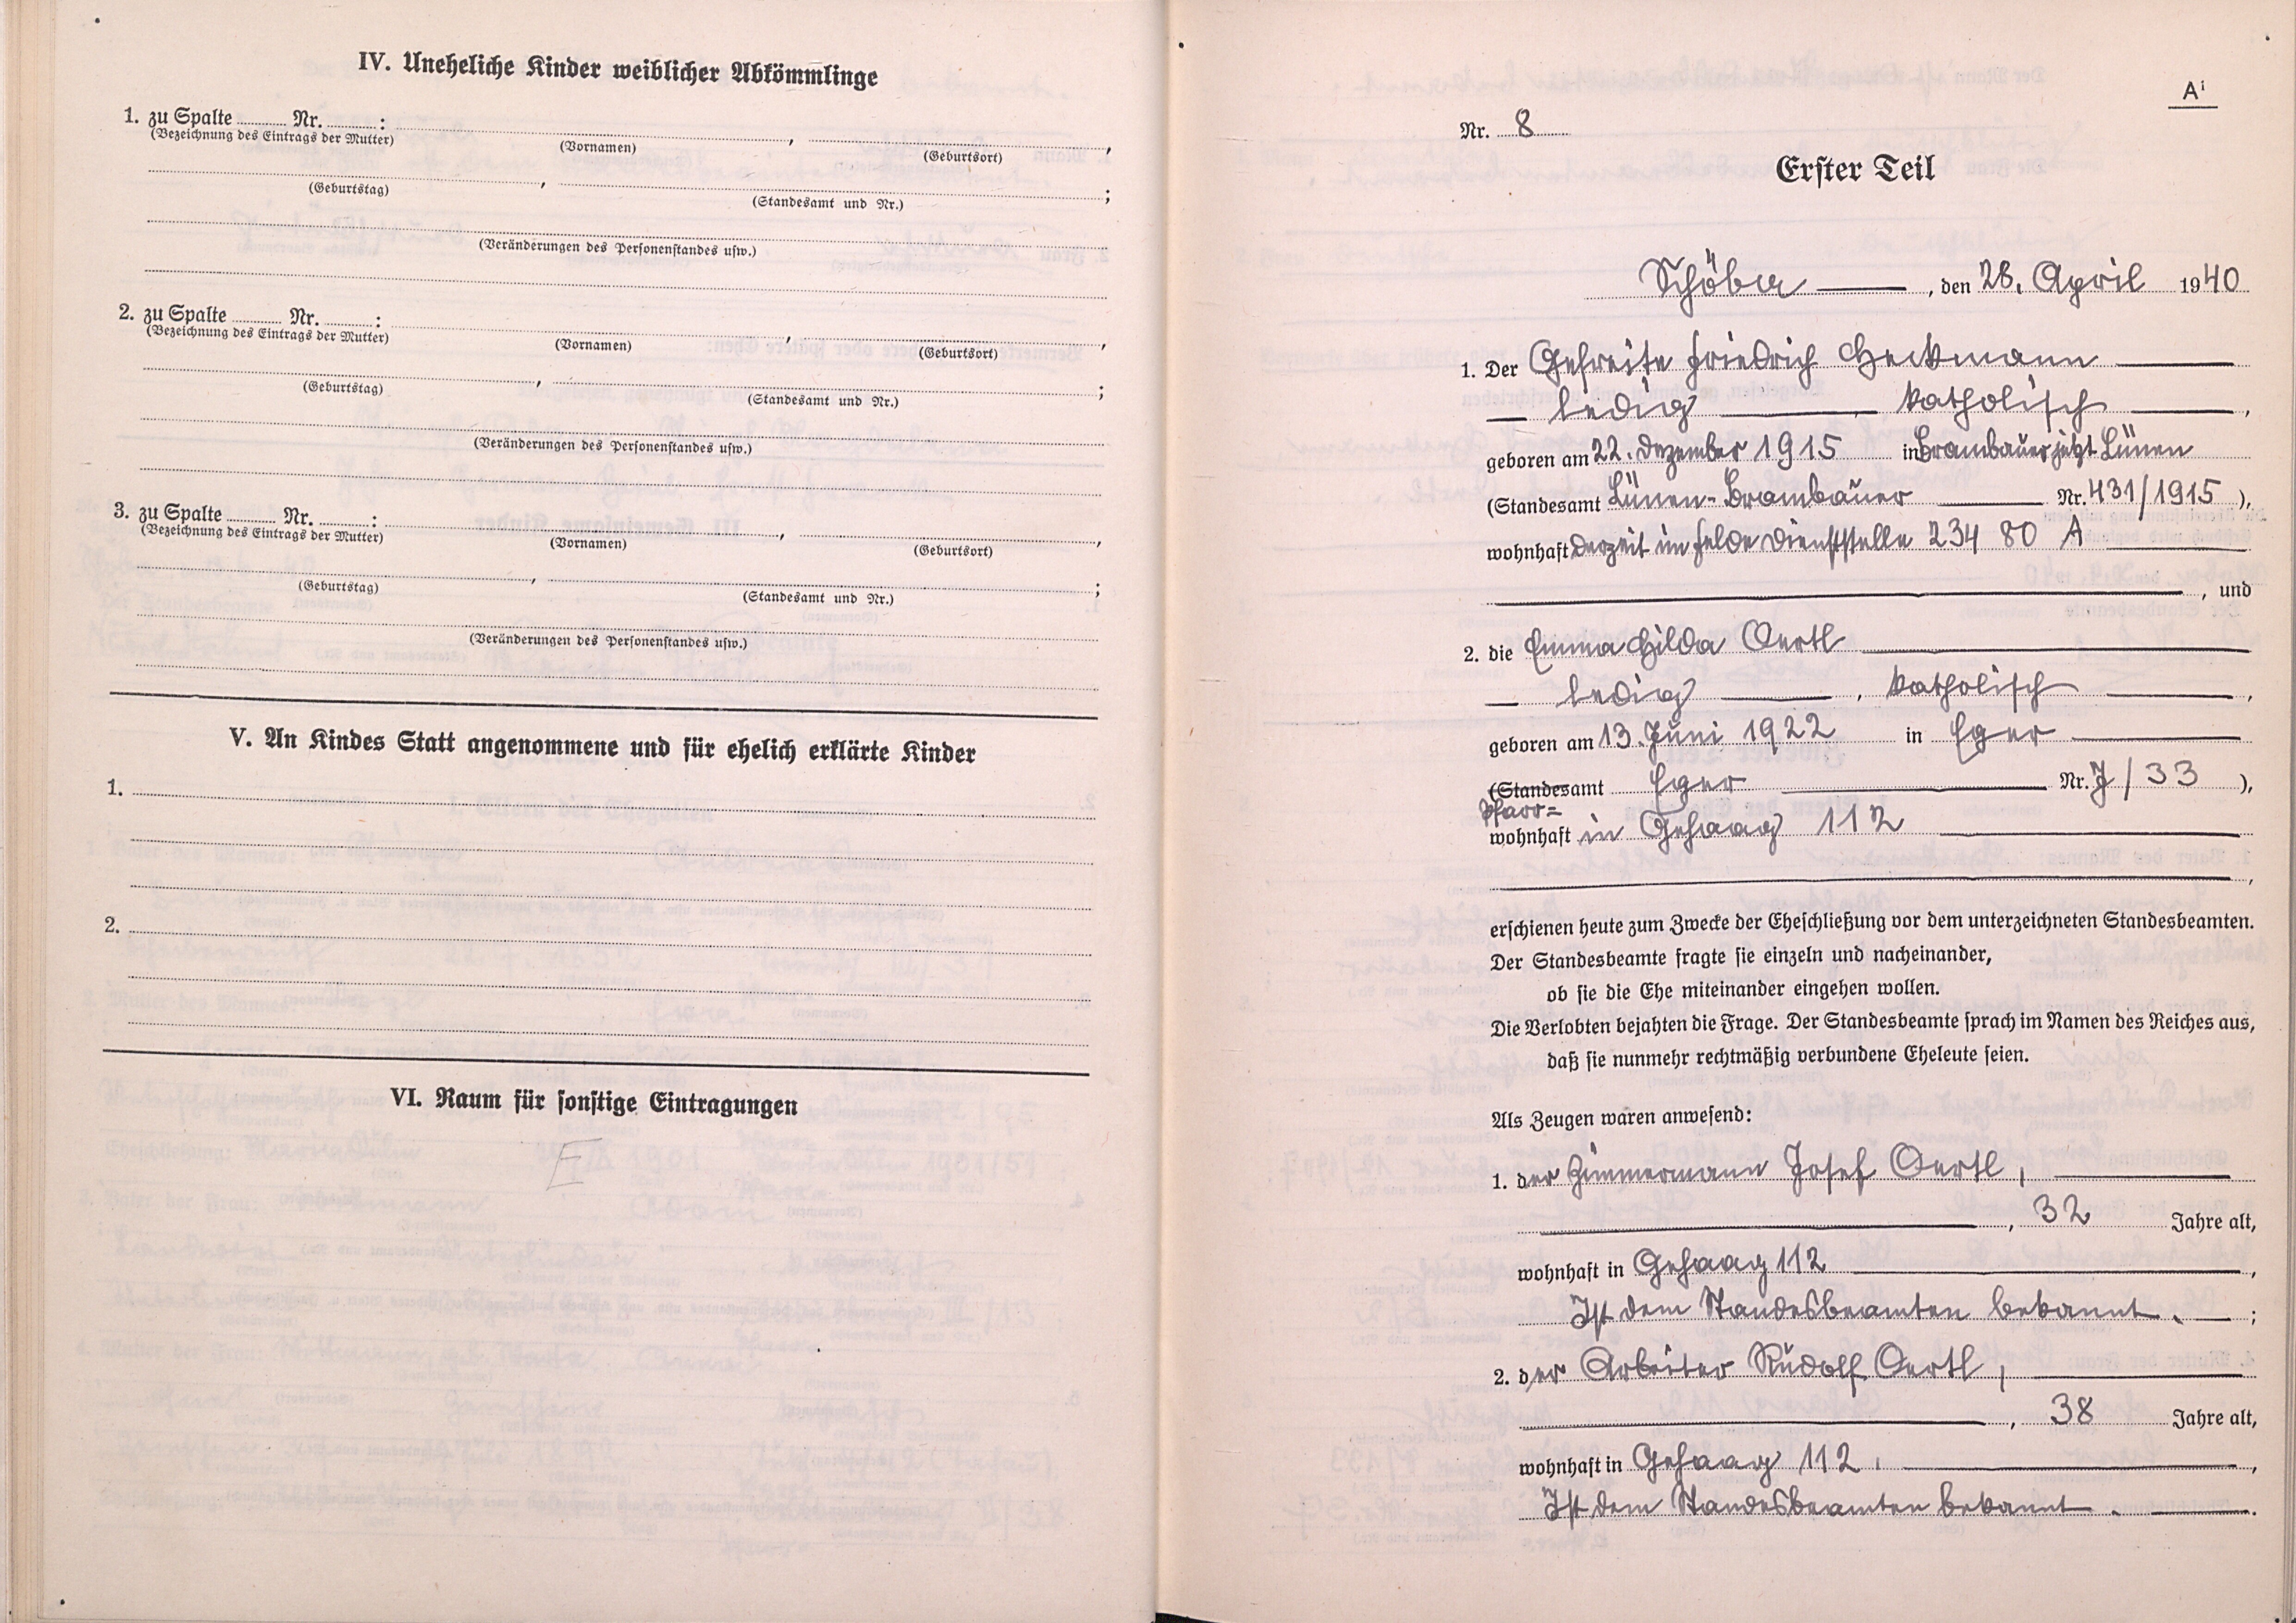 IV. Uneheliche Kinder weiblicher Abkömmlinge
1. zu Spalte ........ Nr. ........ :
(Bezeichnung des Eintrags der Mutter) (Vornamen) , (Geburtsort) ,
(Geburtstag) , (Standesamt und Nr.) ;
(Veränderungen des Personenstandes usw.)
2. zu Spalte ........ Nr. ........ :
(Bezeichnung des Eintrags der Mutter) (Vornamen) , (Geburtsort) ,
(Geburtstag) , (Standesamt und Nr.) ;
(Veränderungen des Personenstandes usw.)
3. zu Spalte ........ Nr. ........ :
(Bezeichnung des Eintrags der Mutter) (Vornamen) , (Geburtsort) ,
(Geburtstag) , (Standesamt und Nr.) ;
(Veränderungen des Personenstandes usw.)
V. An Kindes Statt angenommene und für ehelich erklärte Kinder
1.
2.
VI. Raum für sonstige Eintragungen
E
A¹
Nr. 8
Erster Teil
Schöba , den 28. April 1940
1. Der Gefreite Friedrich Heckmann
ledig katholisch ,
geboren am 22. Dezember 1915 in Brambauer jetzt Lünen
(Standesamt Lünen-Brambauer Nr. 431/1915 ),
wohnhaft derzeit im Felde Dienststelle 234 80 A
, und
2. die Emma Hilda Oertl
ledig , katholisch ,
geboren am 13. Juni 1922 in Eger
(Standesamt Eger Nr. J/33 ),
Pfarr=
wohnhaft in Gehaag 112
,
erschienen heute zum Zwecke der Eheschließung vor dem unterzeichneten Standesbeamten.
Der Standesbeamte fragte sie einzeln und nacheinander,
ob sie die Ehe miteinander eingehen wollen.
Die Verlobten bejahten die Frage. Der Standesbeamte sprach im Namen des Reiches aus,
daß sie nunmehr rechtmäßig verbundene Eheleute seien.
Als Zeugen waren anwesend:
1. der Zimmermann Josef Oertl,
, 32 Jahre alt,
wohnhaft in Gehaag 112 ,
Ist dem Standesbeamten bekannt. ;
2. der Arbeiter Rudolf Oertl,
, 38 Jahre alt,
wohnhaft in Gehaag 112. ,
Ist dem Standesbeamten bekannt. .